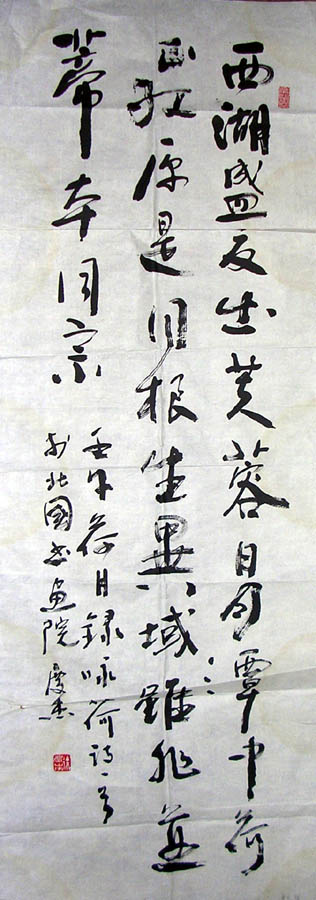 西湖盛夏出芙蓉日月潭中荷
正红原是同根生異域雖非並
蒂本同宗
壬午荷月録咏荷诗一首
于北國书画院